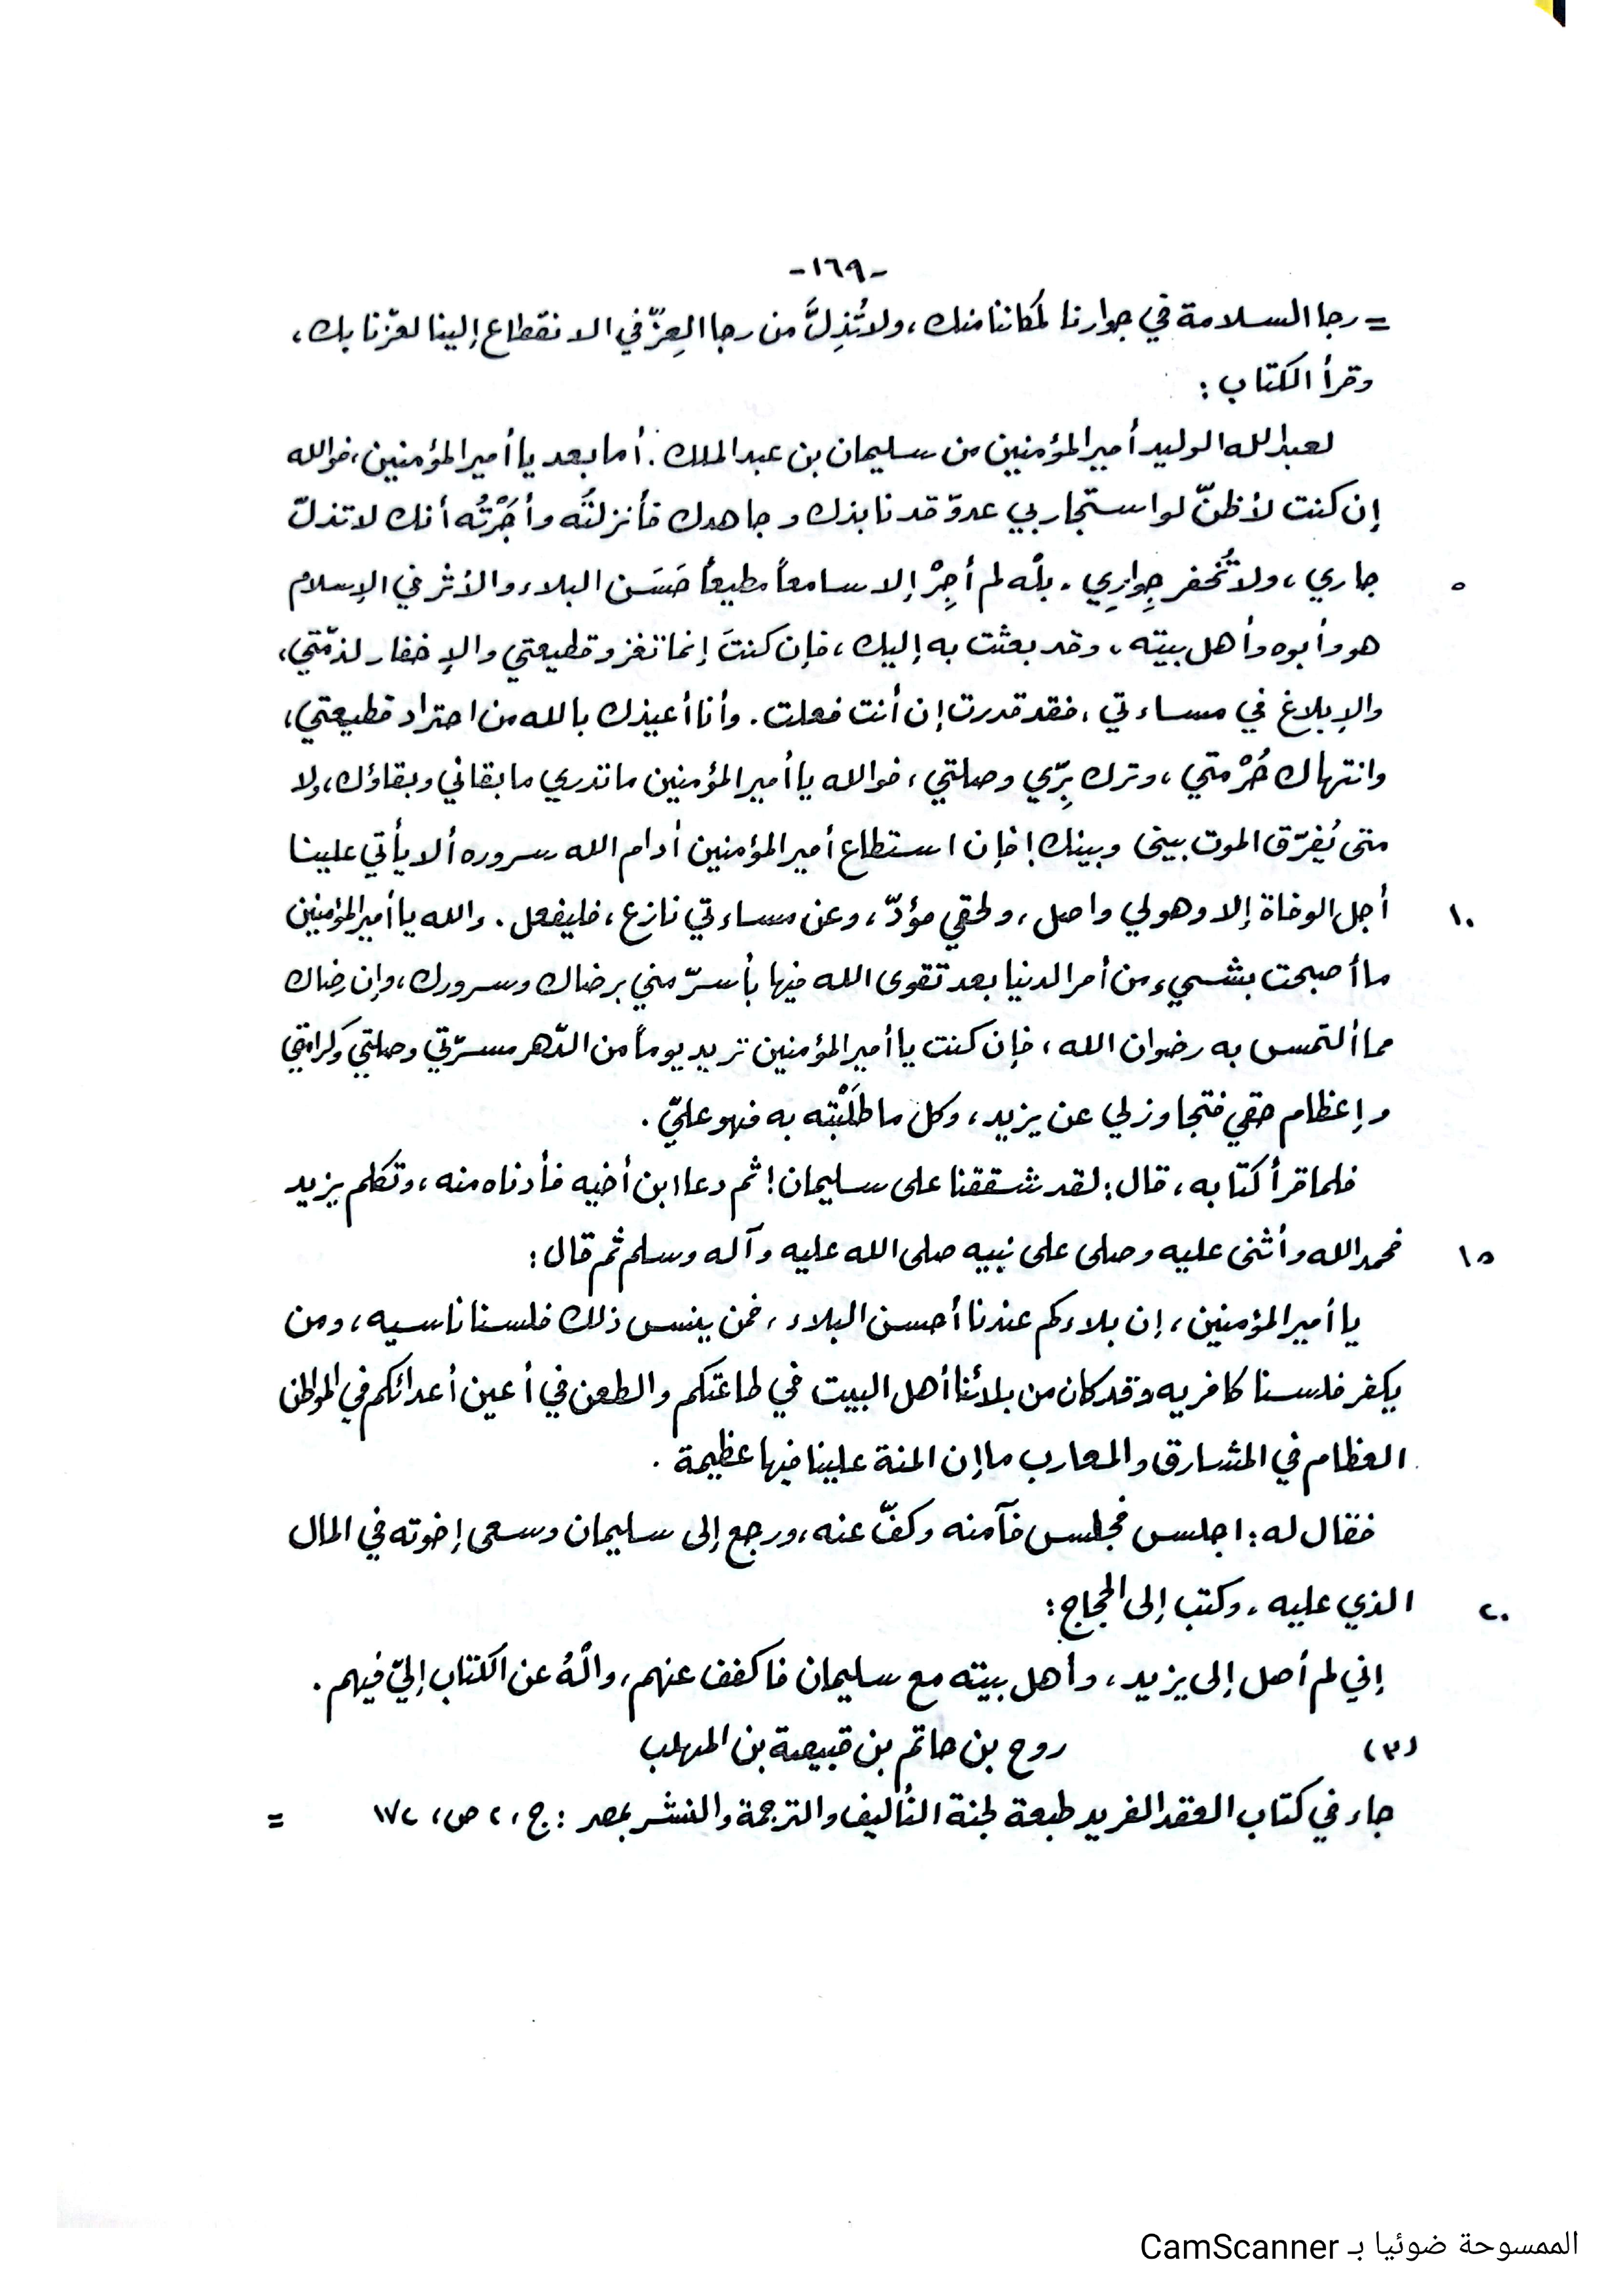 -١٦٩-
= رجا السلامة في جوارنا لمكاننا منك، ولا تُذِلَّ من رجا العِزّ في الانقطاع إلينا لعزّنا بك،
وقرأ الكتاب :
لعبد الله الوليد أمير المؤمنين من سليمان بن عبد الملك. أما بعد يا أمير المؤمنين، فوالله
إن كنت لأظنّ لو استجار بي عدوّ قد نابذك وجاهدك فأنزلتُه وأجَرْتُه أنك لا تذلّ
٥ جاري، ولا تُخفر جِوارِي. بلْه لم أجِرْ إلا سامعاً مطيعاً حَسَن البلاء والأثر في الإسلام
هو وأبوه وأهل بيته، وقد بعثت به إليك، فإن كنتَ إنما تغزو قطيعتي والإخفار لذمّتي،
والإبلاغ في مساءتي، فقد قدرت إن أنت فعلت. وأنا أعيذك بالله من احتراد قطيعتي،
وانتهاك حُرْمتي، وترك بِرّي وصلتي، فوالله يا أمير المؤمنين ما تدري ما بقائي وبقاؤك، ولا
متى يُفرّق الموت بيني وبينك! فإن استطاع أمير المؤمنين أدام الله سروره ألا يأتي علينا
١٠ أجل الوفاة إلا وهو لي واصل، ولحقي مؤدّ، وعن مساءتي نازع، فليفعل. والله يا أمير المؤمنين
ما أصبحت بشيء من أمر الدنيا بعد تقوى الله فيها بأسرّ مني برضاك وسرورك، وإن رضاك
مما ألتمس به رضوان الله، فإن كنت يا أمير المؤمنين تريد يوماً من الدّهر مسرّتي وصلتي وكرامتي
وإعظام حقي فتجاوز لي عن يزيد، وكل ما طلَبْته به فهو عليّ .
فلما قرأ كتابه، قال: لقد شققنا على سليمان! ثم دعا ابن أخيه فأدناه منه، وتكلم يزيد
١٥ فحمد الله وأثنى عليه وصلى على نبيه صلى الله عليه وآله وسلم ثم قال:
يا أمير المؤمنين، إن بلاءكم عندنا أحسن البلاء، فمن ينس ذلك فلسنا ناسيه، ومن
يكفر فلسنا كافريه وقد كان من بلائنا أهل البيت في طاعتكم والطعن في أعين أعدائكم في المواطن
العظام في المشارق والمعارب ما إن المنة علينا فيها عظيمة .
فقال له: اجلس فجلس فآمنه وكفّ عنه، ورجع إلى سليمان وسعى إخوته في المال
٢٠ الذي عليه، وكتب إلى الحجاج:
إني لم أصل إلى يزيد، وأهل بيته مع سليمان فاكفف عنهم، والْهُ عن الكتاب إليّ فيهم .
(٣) روح بن حاتم بن قبيصة بن المهلب
جاء في كتاب العقد الفريد طبعة لجنة التأليف والترجمة والنشر بمصر : ج، ٢ ص، ١٧٢ =
الممسوحة ضوئيا بـ CamScanner